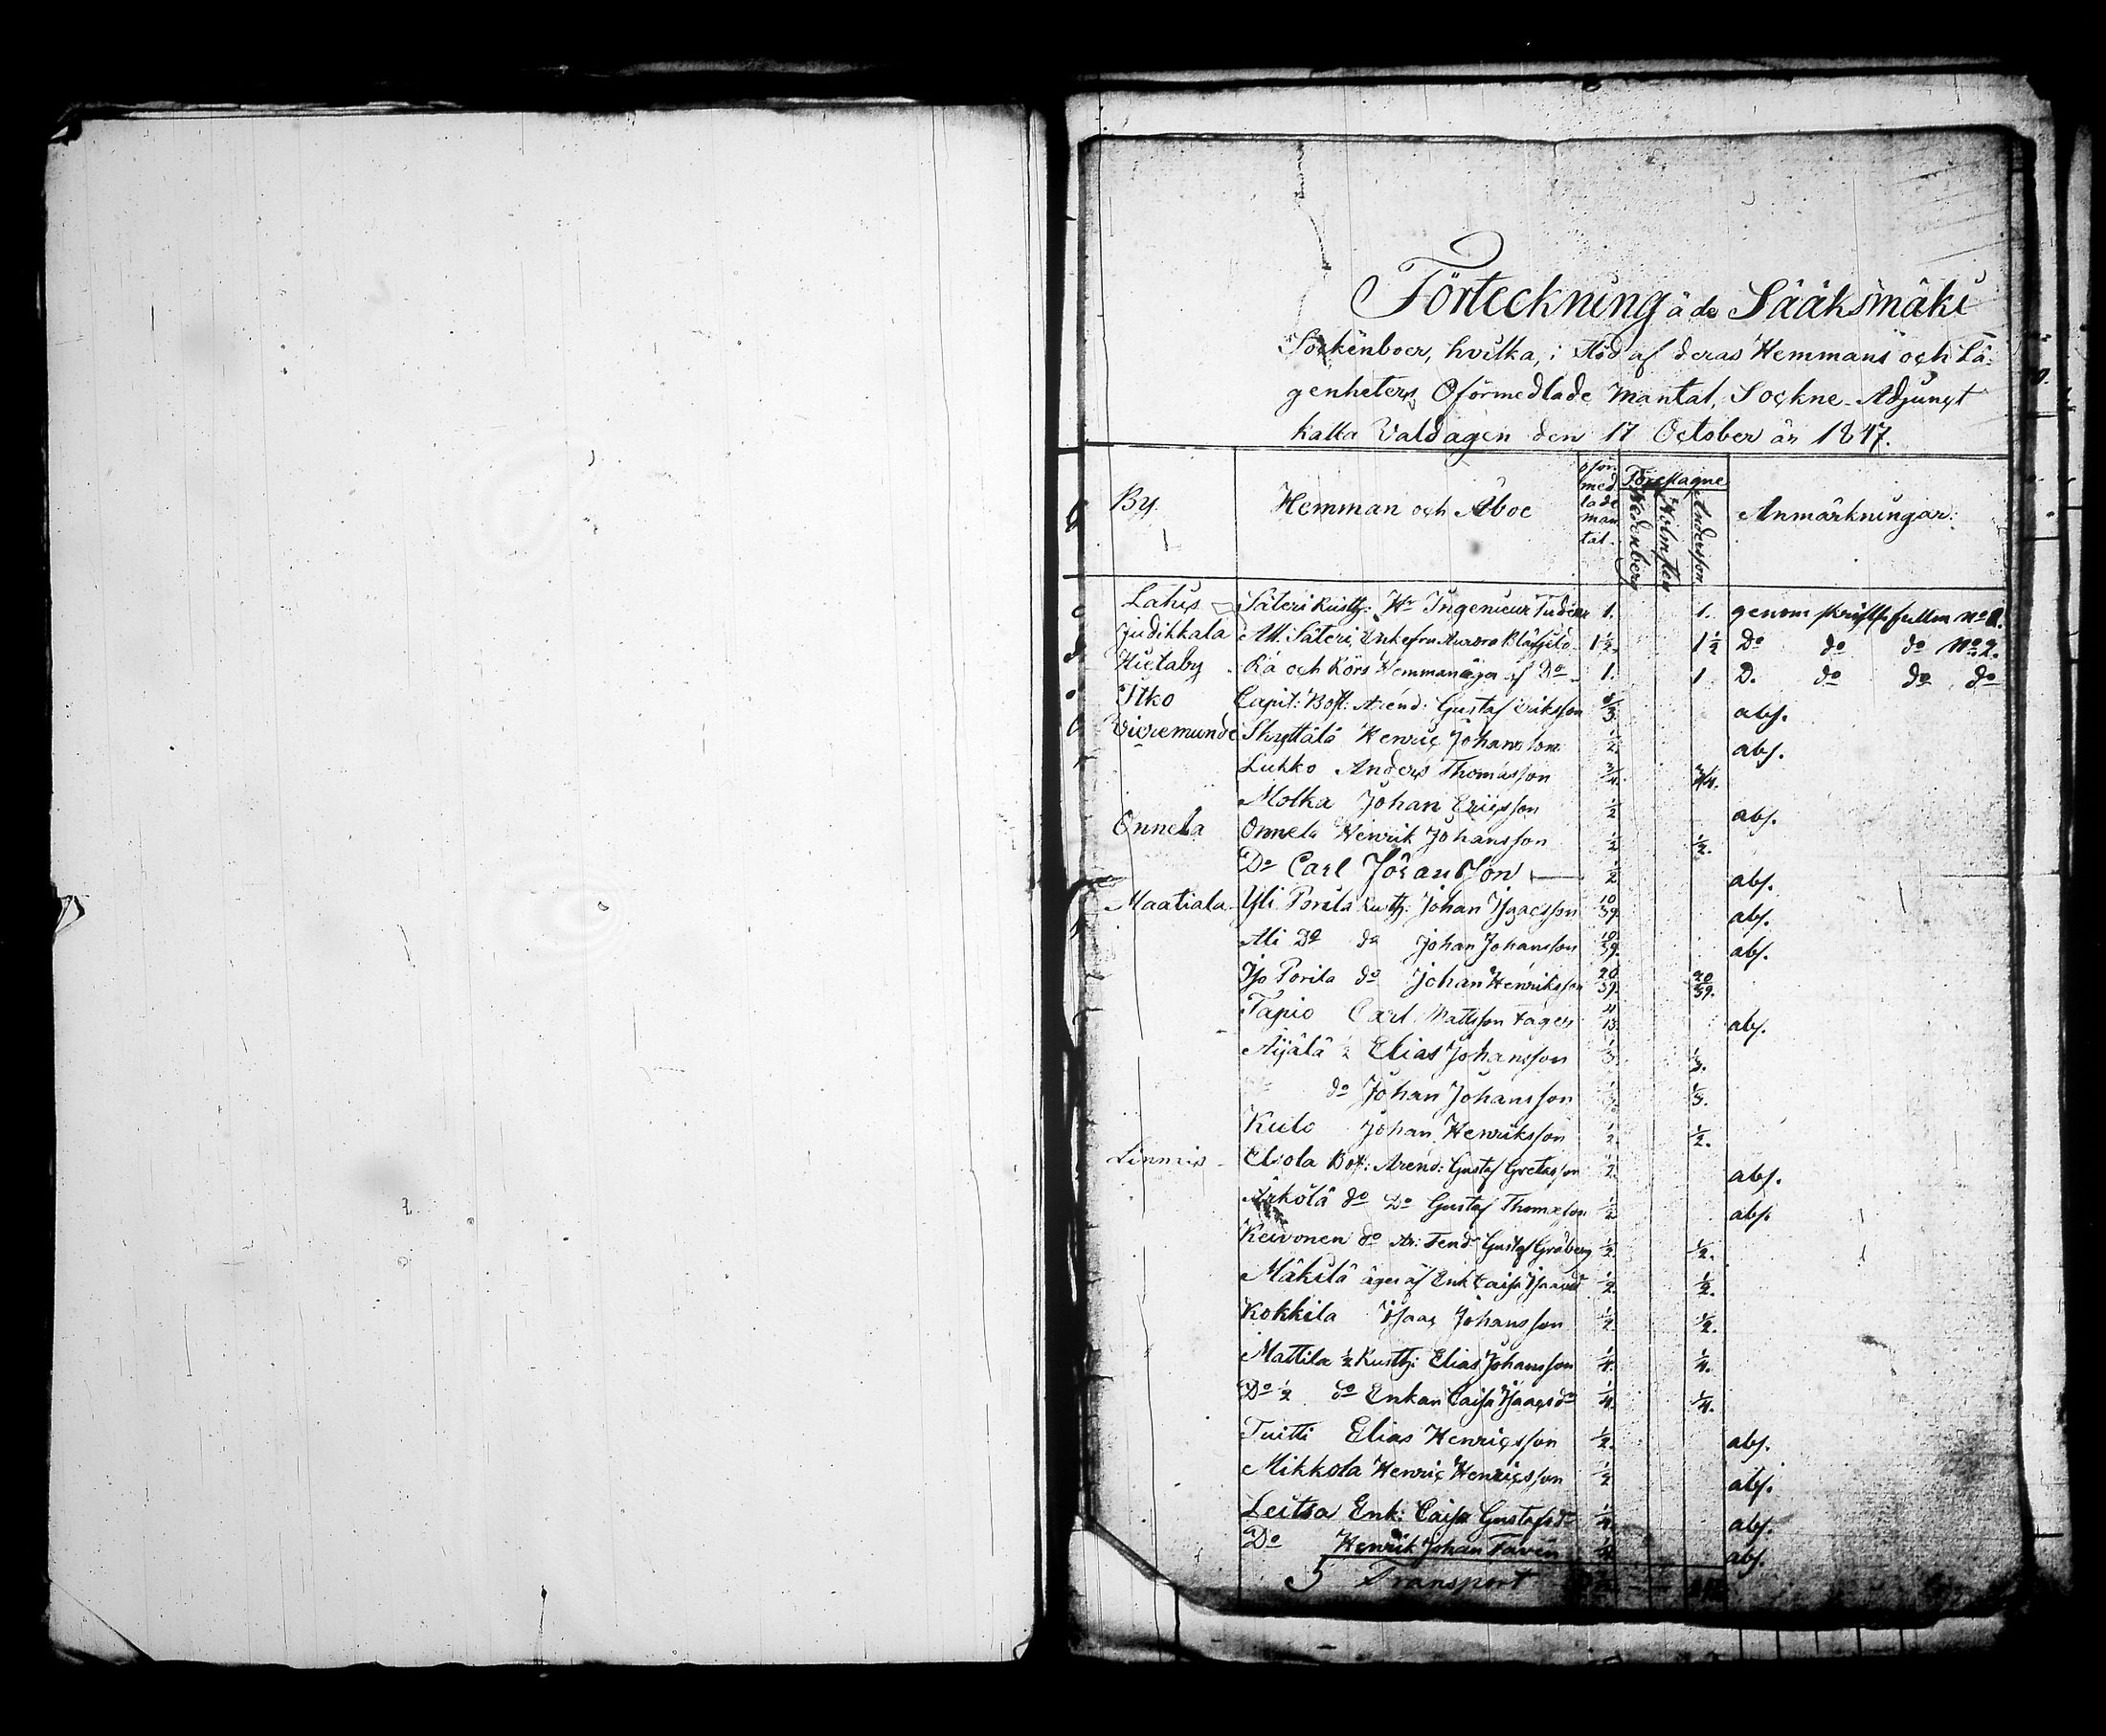 Förteckning å de Sääksmäki
Sockenboer, hvilka, i stöd af deras Hemmans och Lä-
genheters Oförmedlade mantal, Sockne-Adjunct
kalla Valdagen den 17 October år 1847.
By. Hemman och Åboe Oförmedlade mantal. Föreslagne Hedenberg Holmsten Andersson Anmärkningar:
Lahis Säteri Rusth: Hr Ingenieur 1. 1. genom skriftl. fullm No
Judikkala All. Säteri, Enkefru Aurora 1½. 1½ Do do do No 2.
Hietaby Rä och Körs Hemman äges af Do 1. 1 D. do do do
Itko Capit: Bost: Arend: Gustaf Eriksson abs.
Vicremunde Skyttälä Henric Johansson ½ abs.
Luhko Anders Thomasson ¾. ¾.
Molka Johan Ericsson ½ abs.
Onnela Onnela Henrik Johansson ½ ½.
Do Carl Johansson ½ abs.
Maatiala Yli Porila Rusth: Johan Isaacsson 10/39. abs.
Ali Do do Johan Johansson 10/39. abs.
Iso Porila do Johan Henriksson 20/39. 20/39.
Tapio Carl Mattsson Fager 4/13. abs.
Äijälä ½ Elias Johansson ⅓. ⅓.
do Johan Johansson ⅓. ⅓.
Kulo Johan Henriksson ½. ½.
Linnais Eliola Bost: Arend: Gustaf ½. abs.
Arkölä do Do Gustaf Thomasson ½ abs.
Keivonen do Ar: Gustaf Gråberg ½. ½.
Mäkilä äges af Enk. Caisa ½. ½.
Kokkila Isaac Johansson ½. ½.
Mattila ½ Rusth: Elias Johansson ¼. ¼.
Do ½ do Enkan Caisa Isaacsdr ¼. ¼.
Tuitti Elias Henricsson ½. abs.
Mikkola Henric Henricsson ½ abs.
Leitsa Enk: Caisa Gustafsdr ¼. abs.
Do Henrik Johan Faven ¼ abs.
Transport